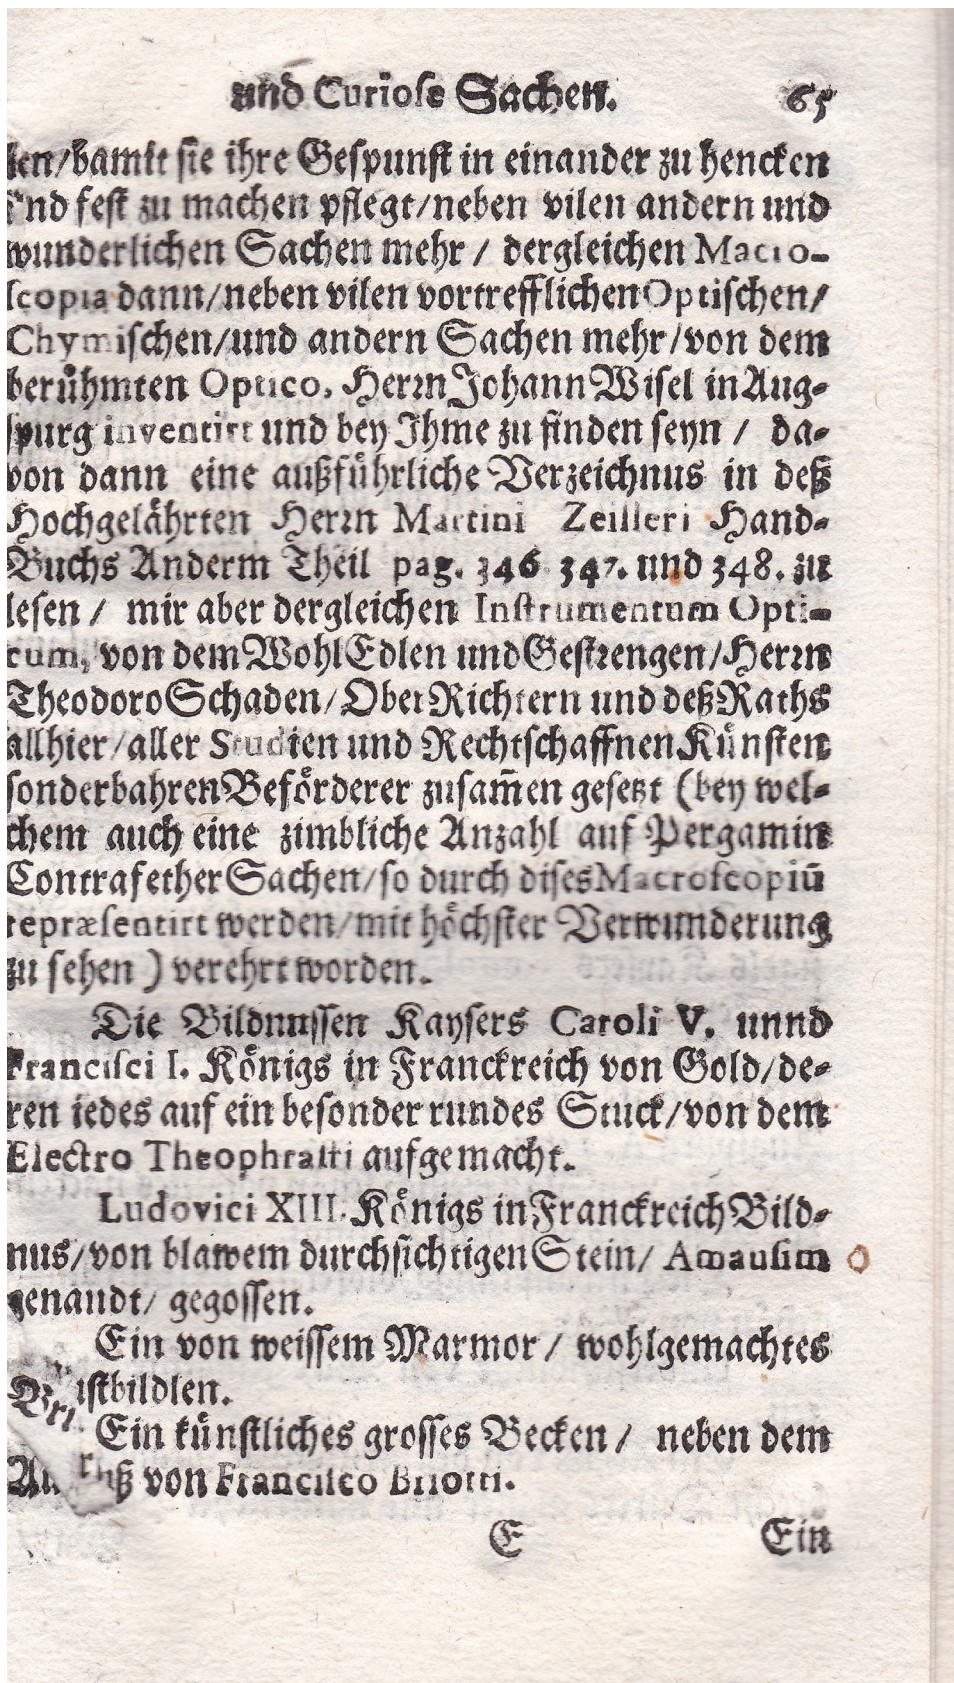 und Curiose Sachen. 65
len/damit sie ihre Gespunst in einander zu hencken
und fest zu machen pflegt/neben vilen andern und
wunderlichen Sachen mehr / dergleichen Macro-
scopia dann/neben vilen vortrefflichen Optischen/
Chymischen/und andern Sachen mehr/von dem
berühmten Optico, Herrn Johann Wisel in Aug-
spurg inventirt und bey Ihme zu finden seyn / da-
von dann eine außführliche Verzeichnus in deß
Hochgelährten Herrn Martini Zeilleri Hand-
Buchs Anderm Theil pag. 346 347. und 348. zu
lesen / mir aber dergleichen Instrumentum Opti-
cum, von dem WohlEdlen und Gestrengen/Herrn
Theodoro Schaden/Ober Richtern und deß Raths
allhier/aller Studien und Rechtschaffnen Künsten
sonderbahren Beförderer zusam̄en gesetzt (bey wel-
chem auch eine zimbliche Anzahl auf Pergamin
Contrafether Sachen/so durch dises Macroscopiū
repræsentirt werden/mit höchster Verwunderung
zu sehen ) verehrt worden.
Die Bildnussen Kaysers Caroli V. unnd
Francisci I. Königs in Franckreich von Gold/de-
ren iedes auf ein besonder rundes Stuck/von dem
Electro Theophrasti aufgemacht.
Ludovici XIII. Königs in Franckreich Bild-
nus/von blawem durchsichtigen Stein/ Amausim
genandt/ gegossen.
Ein von weissem Marmor / wohlgemachtes
Brustbildlen.
Ein künstliches grosses Becken / neben dem
von Francisco Briotti.
E Ein